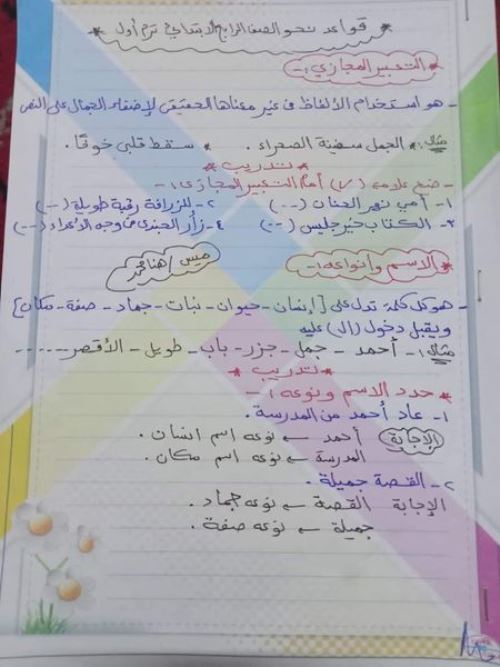 * قواعد نحو الصف الرابع الابتدائي ترم أول *
* التعبير المجازي :-
- هو استخدام الألفاظ في غير معناها الحقيقي لإضفاء الجمال على النص
مثال :* الجمل سفينة الصحراء . * سقط قلبي خوفًا .
* تدريب *
- ضع علامة (✓) أمام التعبير المجازي :-
١- أمي نهر الحنان (--) ٢- للزرافة رقبة طويلة (--)
٣- الكتاب خير جليس (--) ٤- زأر الجندي في وجه الأعداء (--)
* الاسم وأنواعه :- ميس / هنا محمد
- هو كل كلمة تدل على [إنسان - حيوان - نبات - جماد - صفة - مكان]
ويقبل دخول (ال) عليه
مثال :- أحمد - جمل - جزر - باب - طويل - الأقصر ------
* تدريب *
* حدد الاسم ونوعه :-
١- عاد أحمد من المدرسة .
الإجابة أحمد ← نوعه اسم انسان .
المدرسة ← نوعه اسم مكان .
٢- القصة جميلة .
الإجابة القصة ← نوعه جماد .
جميلة ← نوعه صفة .